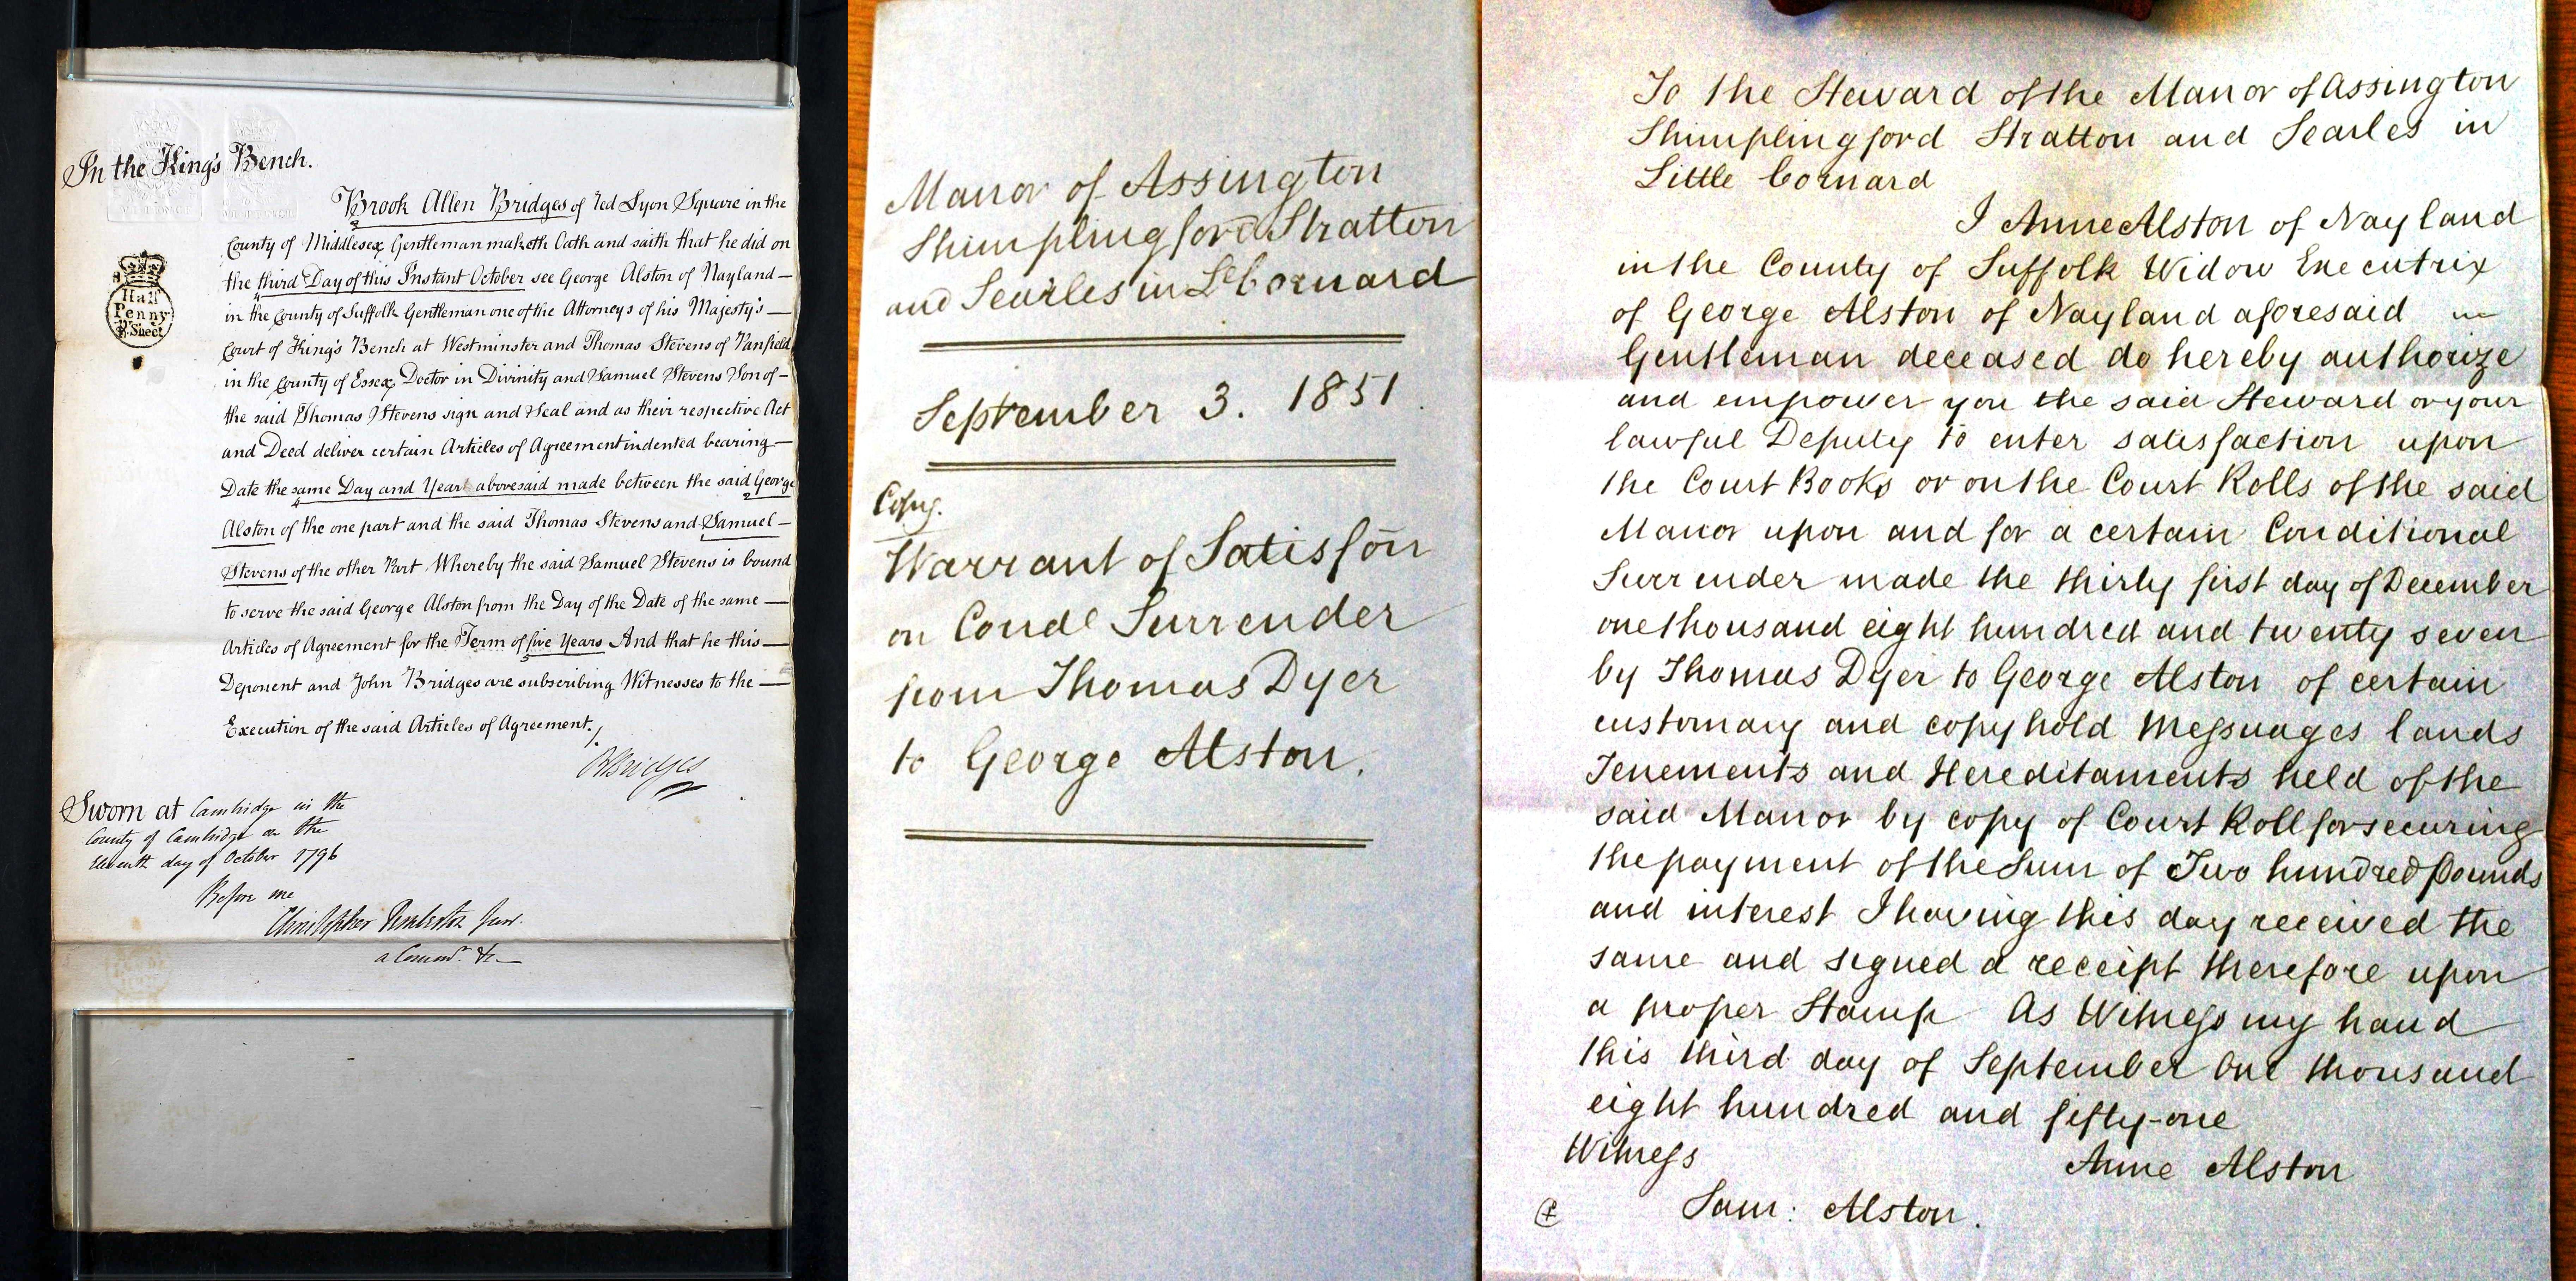 In the King's Bench.
Brook Allen Bridges of Red Lyon Square in the
County of Middlesex Gentleman maketh Oath and saith that he did on
the third Day of this Instant October see George Alston of Nayland
in the County of Suffolk Gentleman one of the Attorneys of his Majesty's
Court of King's Bench at Westminster and Thomas Stevens of Panfield
in the County of Essex Doctor in Divinity and Samuel Stevens Son of
the said Thomas Stevens sign and Seal and as their respective Act
and Deed deliver certain Articles of Agreement indented bearing
Date the same Day and Year abovesaid made between the said George
Alston of the one part and the said Thomas Stevens and Samuel
Stevens of the other Part Whereby the said Samuel Stevens is bound
to serve the said George Alston from the Day of the Date of the same
Articles of Agreement for the Term of five Years And that he this
Deponent and John Bridges are subscribing Witnesses to the
Execution of the said Articles of Agreement.
BABridges
Half
Penny
Sheet
Sworn at Cambridge in the
County of Cambridge on the
Eleventh day of October 1796
Before me
Christopher Pemberton Junr.
a Commr. &c
Manor of Assington
Shimplingford Stratton
and Searles in Le Cornard
September 3. 1851.
Copy.
Warrant of Satisfōn
on Condl Surrender
from Thomas Dyer
to George Alston.
To the Steward of the Manor of Assington
Shimplingford Stratton and Searles in
Little Cornard
I Anne Alston of Nayland
in the County of Suffolk Widow Executrix
of George Alston of Nayland aforesaid
Gentleman deceased do hereby authorize
and empower you the said Steward or your
lawful Deputy to enter satisfaction upon
the Court Books or on the Court Rolls of the said
Manor upon and for a certain Conditional
Surrender made the thirty first day of December
one thousand eight hundred and twenty seven
by Thomas Dyer to George Alston of certain
customary and copyhold Messuages lands
Tenements and Hereditaments held of the
said Manor by copy of Court Roll for securing
the payment of the Sum of Two hundred Pounds
and interest I having this day received the
same and signed a receipt therefore upon
a proper Stamp As Witness my hand
this third day of September One thousand
eight hundred and fifty-one
Witness
Anne Alston
Sam: Alston.